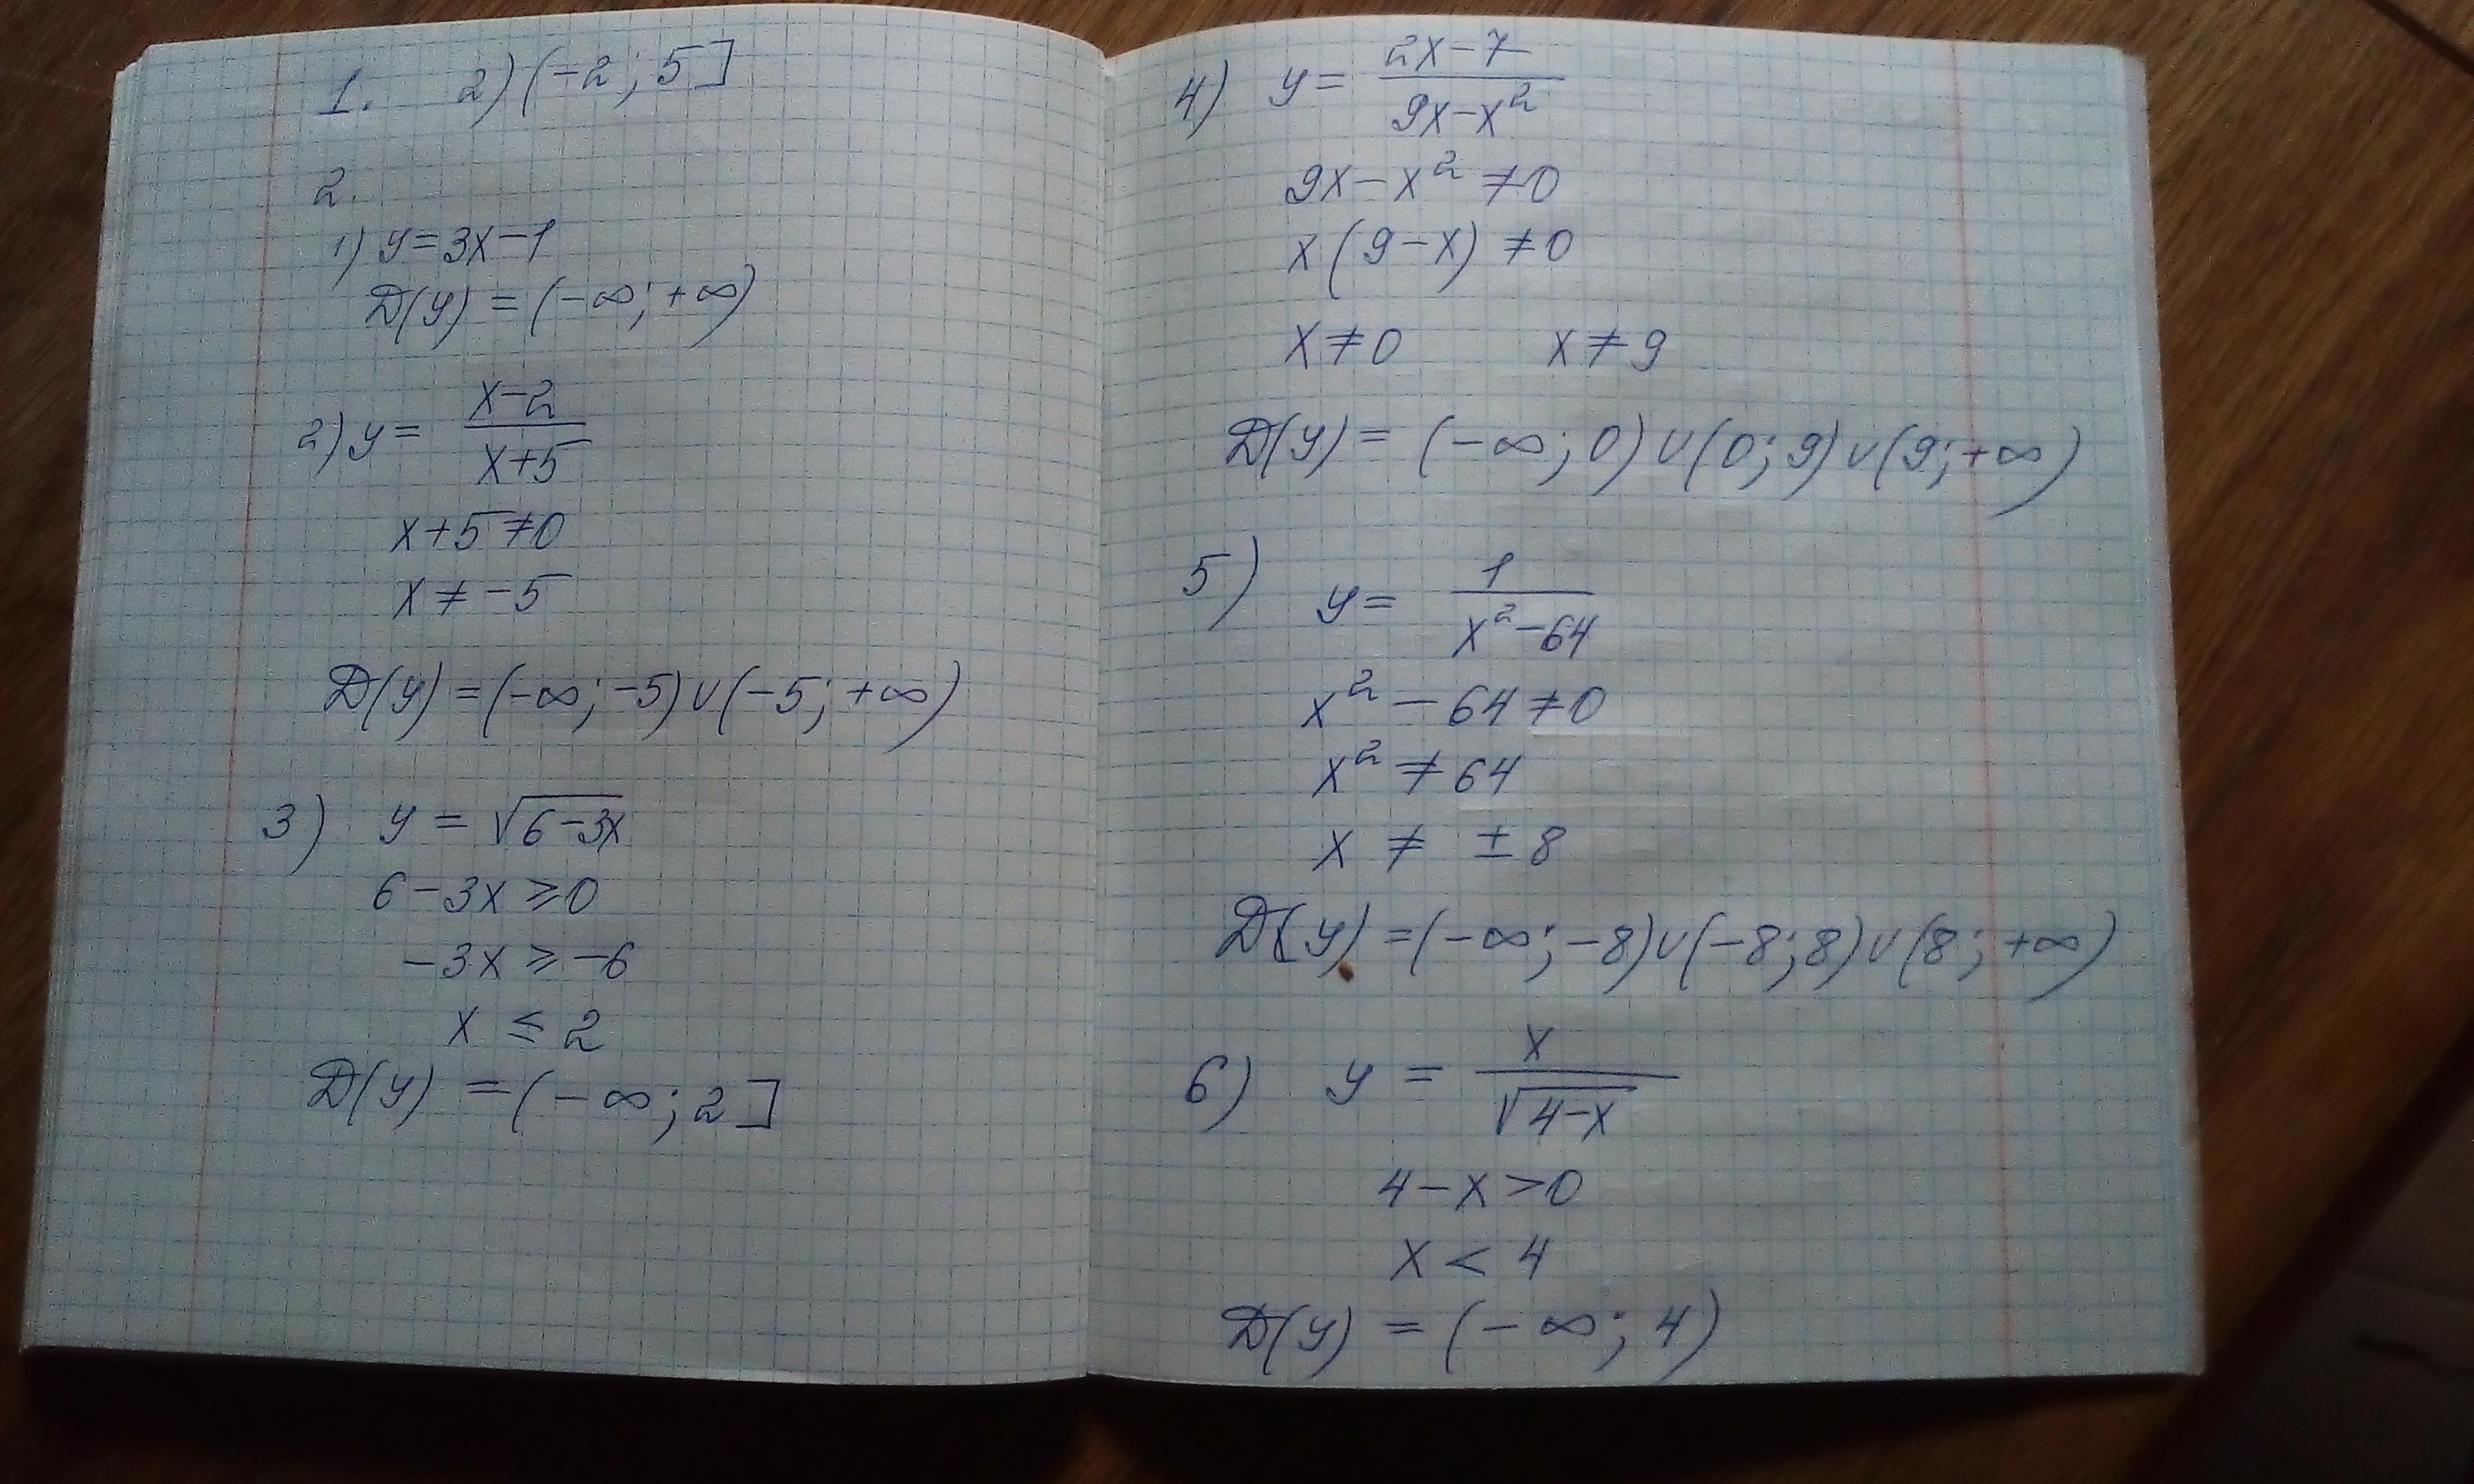 1. 2) (-2; 5]
2.
1) y=3x-1
D(y) = (-∞; +∞)
2) y = (x-2)/(x+5)
x+5≠0
x ≠ -5
D(y) = (-∞; -5) ∪ (-5; +∞)
3) y = √(6-3x)
6-3x ≥ 0
-3x ≥ -6
x ≤ 2
D(y) = (-∞; 2]
4) y = (2x-7)/(9x-x²)
9x-x² ≠0
x(9-x) ≠0
x≠0 x≠9
D(y) = (-∞; 0) ∪ (0; 9) ∪ (9; +∞)
5) y = 1/(x²-64)
x² - 64 ≠ 0
x² ≠ 64
x ≠ ±8
D(y) = (-∞; -8) ∪ (-8; 8) ∪ (8; +∞)
6) y = x/√(4-x)
4-x>0
x < 4
D(y) = (-∞; 4)